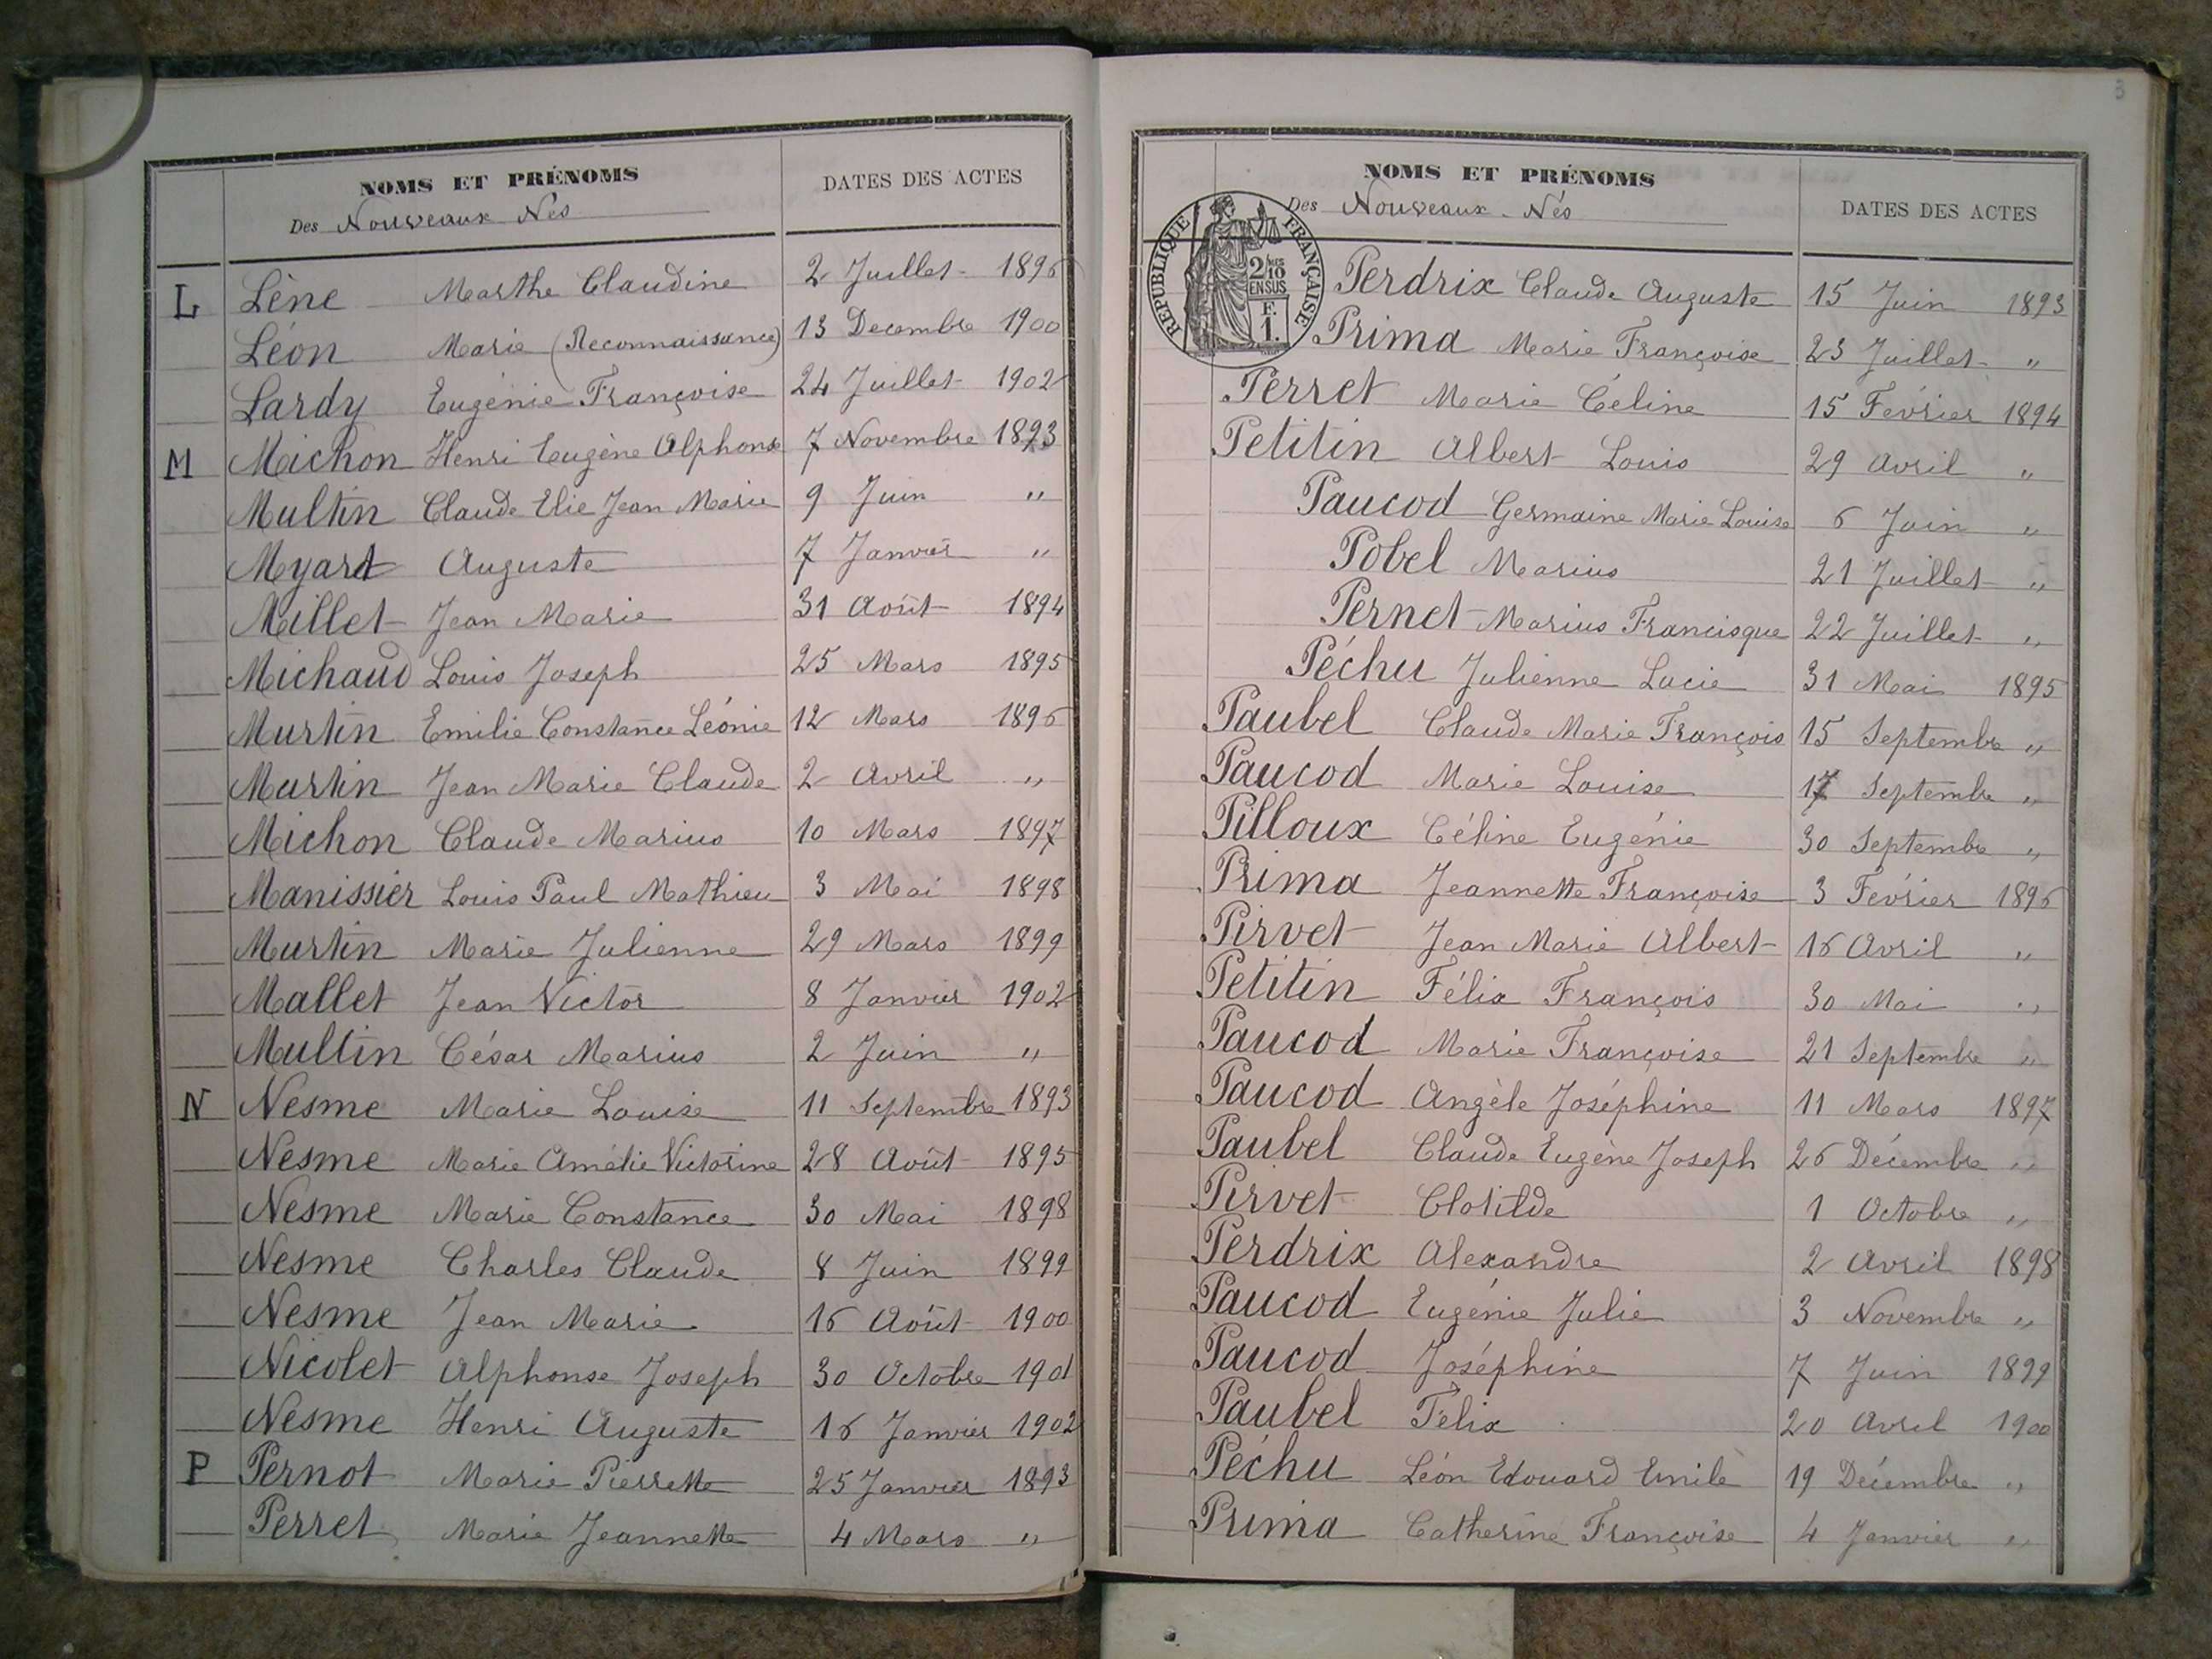 NOMS ET PRÉNOMS
DATES DES ACTES
Des Nouveaux Nés
L Lène Marthe Claudine 2 Juillet 1896
Léon Marie (Reconnaissance) 13 Decembre 1900
Lardy Eugénie Françoise 24 Juillet 1902
M Michon Henri Eugène Alphonse 7 Novembre 1893
Multin Claude Elie Jean Marie 9 Juin "
Myard Auguste 7 Janvier "
Millet Jean Marie 31 Août 1894
Michaud Louis Joseph 25 Mars 1895
Murtin Emilie Constance Léonie 12 Mars 1896
Murtin Jean Marie Claude 2 Avril "
Michon Claude Marius 10 Mars 1897
Manissier Louis Paul Mathieu 3 Mai 1898
Murtin Marie Julienne 29 Mars 1899
Mallet Jean Victor 8 Janvier 1902
Multin César Marius 2 Juin "
N Nesme Marie Louise 11 Septembre 1893
Nesme Marie Amélie Victorine 28 Août 1895
Nesme Marie Constance 30 Mai 1898
Nesme Charles Claude 8 Juin 1899
Nesme Jean Marie 16 Août 1900
Nicolet Alphonse Joseph 30 Octobre 1901
Nesme Henri Auguste 16 Janvier 1902
P Pernot Marie Pierrette 25 Janvier 1893
Perret Marie Jeannette 4 Mars "
3
NOMS ET PRÉNOMS
DATES DES ACTES
Des Nouveaux-Nés
RÉPUBLIQUE FRANÇAISE
2/10
EN SUS
F.
1.
Perdrix Claude Auguste 15 Juin 1893
Prima Marie Françoise 23 Juillet "
Perret Marie Céline 15 Février 1894
Petitin Albert Louis 29 Avril "
Paucod Germaine Marie Louise 6 Juin "
Pobel Marius 21 Juillet "
Pernet Marius Francisque 22 Juillet "
Péchu Julienne Lucie 31 Mai 1895
Paubel Claude Marie François 15 Septembre "
Paucod Marie Louise 17 Septembre "
Pilloux Céline Eugénie 30 Septembre "
Prima Jeannette Françoise 3 Février 1896
Pirvet Jean Marie Albert 16 Avril "
Petitin Félix François 30 Mai "
Paucod Marie Françoise 21 Septembre "
Paucod Angèle Joséphine 11 Mars 1897
Paubel Claude Eugène Joseph 26 Décembre "
Pirvet Clotilde 1 Octobre "
Perdrix Alexandre 2 Avril 1898
Paucod Eugénie Julie 3 Novembre "
Paucod Joséphine 7 Juin 1899
Paubel Félix 20 Avril 1900
Péchu Léon Edouard Emile 19 Décembre "
Prima Catherine Françoise 4 Janvier "